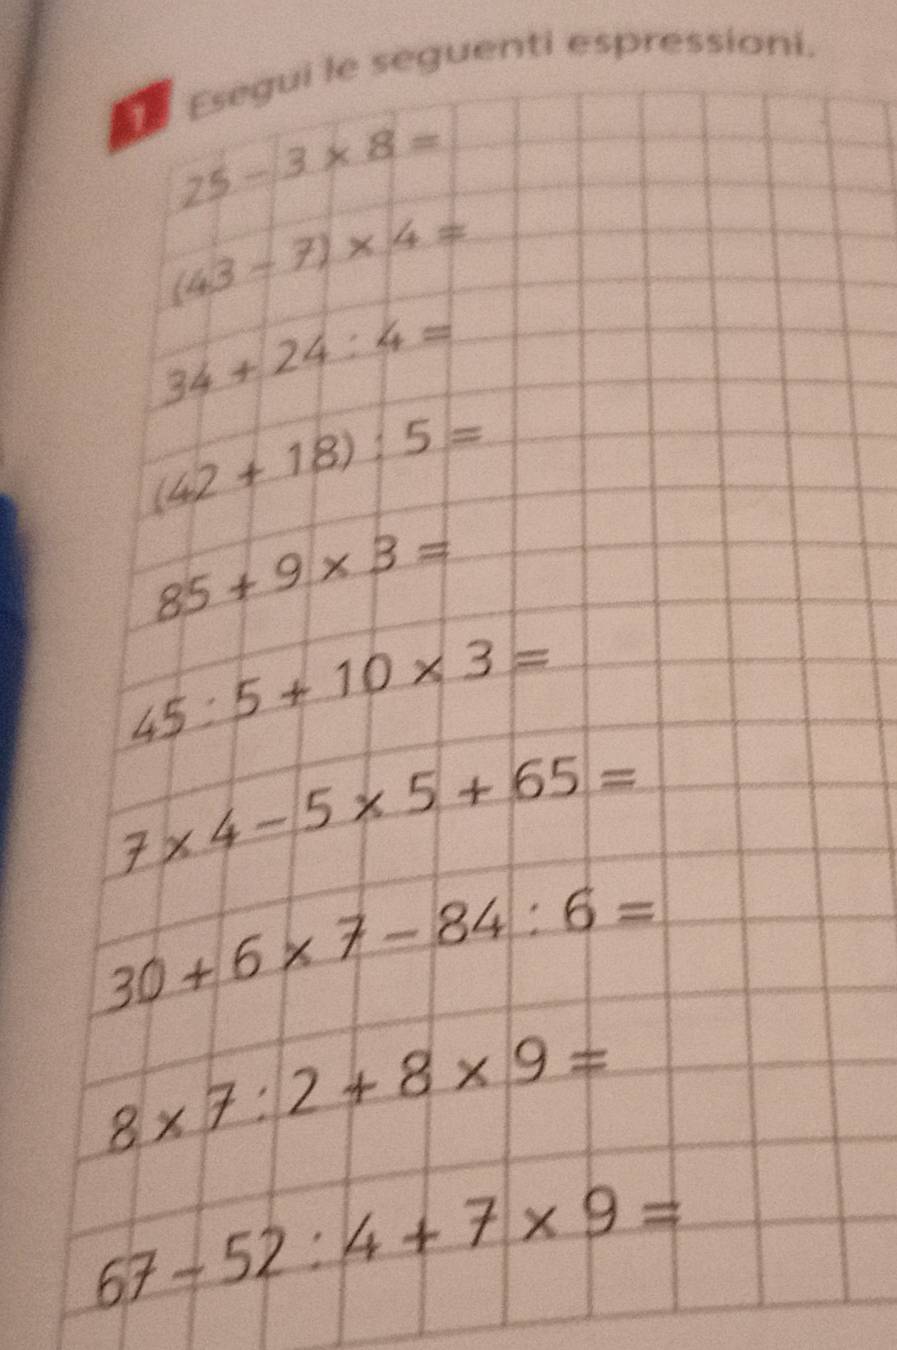 1 Esegui le seguenti espressioni.
25 - 3 × 8 =
(43 - 7) × 4 =
34 + 24 : 4 =
(42 + 18) : 5 =
85 + 9 × 3 =
45 : 5 + 10 × 3 =
7 × 4 - 5 × 5 + 65 =
30 + 6 × 7 - 84 : 6 =
8 × 7 : 2 + 8 × 9 =
67 - 52 : 4 + 7 × 9 =